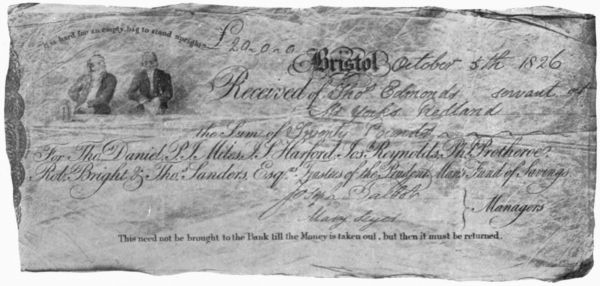 It is hard for an empty bag to stand upright.
£20-0-0
Bristol October 5th 1826
Received of Thos. Edmonds servant at
Mr Yorks Redland
the Sum of Twenty Pounds
For Tho. Daniel, P. J. Miles, J. S. Harford, Jos. Reynolds, Ph. Protheroe,
Rob. Bright & Tho. Sanders, Esqrs. Trustees of the Prudent Man's Fund of Savings.
Joseph Talbot
Mary
Managers
This need not be brought to the Bank till the Money is taken out, but then it must be returned.